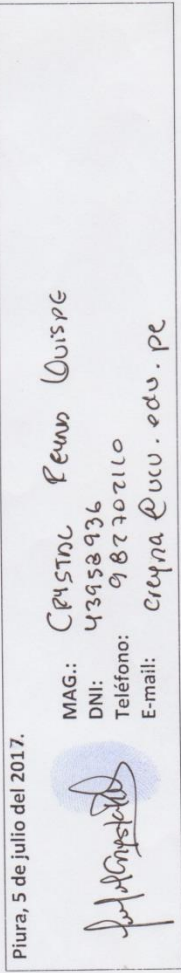 Piura, 5 de julio del 2017.
MAG.: Crystal Reyna Quispe
DNI: 43958936
Teléfono: 982702110
E-mail: creyna@ucv.edu.pe